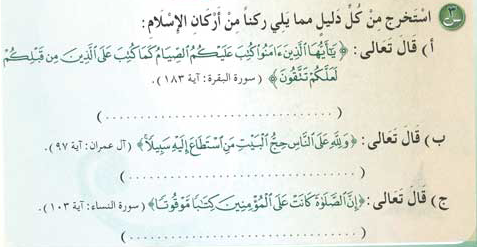 س ٣ استخرج مِنْ كُلِّ دليلٍ مما يَلِي ركنًا مِنْ أركانِ الإسْلَامِ:
أ ) قَالَ تَعَالى: ﴿ يَٰٓأَيُّهَا ٱلَّذِينَ ءَامَنُوا۟ كُتِبَ عَلَيْكُمُ ٱلصِّيَامُ كَمَا كُتِبَ عَلَى ٱلَّذِينَ مِن قَبْلِكُمْ
لَعَلَّكُمْ تَتَّقُونَ ﴾ ( سورة البقرة: آية ١٨٣ ).
(..............................)
ب ) قَالَ تَعَالَى: ﴿ وَلِلَّهِ عَلَى ٱلنَّاسِ حِجُّ ٱلْبَيْتِ مَنِ ٱسْتَطَاعَ إِلَيْهِ سَبِيلًا ﴾ ( آل عمران: آية ٩٧ ).
(..............................)
ج ) قَالَ تَعَالَى: ﴿ إِنَّ ٱلصَّلَوٰةَ كَانَتْ عَلَى ٱلْمُؤْمِنِينَ كِتَٰبًا مَّوْقُوتًا ﴾ ( سورة النساء: آية ١٠٣ ).
(..............................)